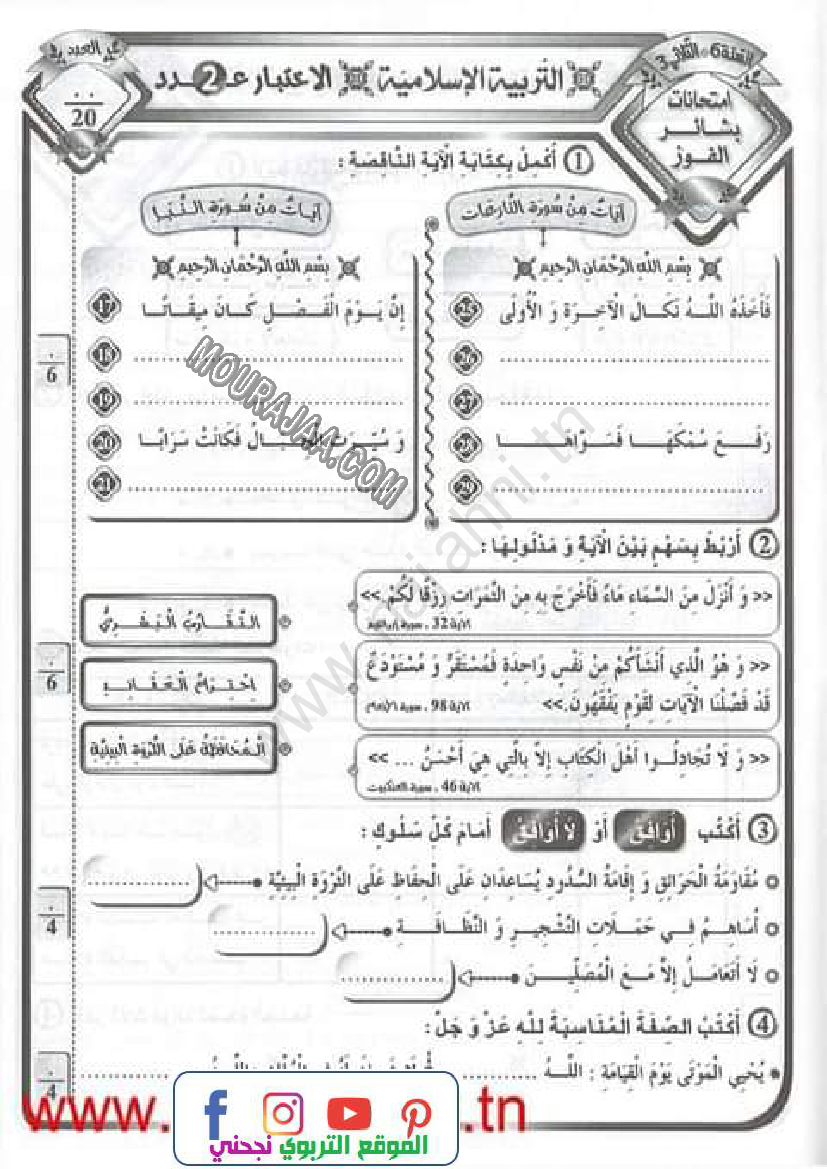 السنة 6 - الثلاثي 3
امتحانات
بشائر
الفوز
التربية الإسلامية الاختبار عـ2ـدد
العدد
20
1 أُكْمِلُ بِكِتَابَةِ الْآيَةِ النَّاقِصَةِ :
آيَاتٌ مِنْ سُورَةِ النَّازِعَاتِ
بِسْمِ اللهِ الرَّحْمَانِ الرَّحِيمِ
فَأَخَذَهُ اللَّـهُ نَكَالَ الْآخِرَةِ وَ الْأُولَى 25
26 ..........
27 ..........
رَفَـــعَ سَمْكَهَـــا فَسَـــوَّاهَـــــا 28
29 ..........
آيَاتٌ مِنْ سُورَةِ النَّبَإِ
بِسْمِ اللهِ الرَّحْمَانِ الرَّحِيمِ
إِنَّ يَـوْمَ الْفَصْـلِ كَـانَ مِيقَـاتًـا 17
18 ..........
19 ..........
وَ سُيِّرَتِ الْجِبَالُ فَكَانَتْ سَرَابًـا 20
21 ..........
6
2 أَرْبُطُ بِسَهْمٍ بَيْنَ الْآيَةِ وَ مَدْلُولِهَا :
<< وَ أَنْزَلَ مِنَ السَّمَاءِ مَاءً فَأَخْرَجَ بِهِ مِنَ الثَّمَرَاتِ رِزْقًا لَكُمْ.>>
الآية 32 . سورة إبراهيم
<< وَ هُوَ الَّذِي أَنْشَأَكُمْ مِنْ نَفْسٍ وَاحِدَةٍ فَمُسْتَقَرٌّ وَ مُسْتَوْدَعٌ
قَدْ فَصَّلْنَا الْآيَاتِ لِقَوْمٍ يَفْقَهُونَ.>> الآية 98 . سورة الأنعام
<< وَ لَا تُجَادِلُـوا أَهْلَ الْكِتَابِ إِلاَّ بِالَّتِي هِيَ أَحْسَنُ ... >>
الآية 46 . سورة العنكبوت
التَّقَـارُبُ الْبَشَـرِيُّ
اِحْتِرَامُ الْعَقَـائِـدِ
الْمُحَافَظَةُ عَلَى الثَّرْوَةِ الْبِيئِيَّةِ
6
3 أَكْتُبُ أُوَافِقُ أَوْ لَا أُوَافِقُ أَمَامَ كُلِّ سُلُوكٍ :
مُقَاوَمَةُ الْحَرَائِقِ وَ إِقَامَةُ السُّدُودِ يُسَاعِدَانِ عَلَى الْحِفَاظِ عَلَى الثَّرْوَةِ الْبِيئِيَّةِ ..........
أُسَاهِـمُ فِـي حَمَـلَاتِ التَّشْجِيـرِ وَ النَّظَـافَـــةِ ..........
لَا أَتَعَامَـلُ إِلاَّ مَـعَ الْمُصَلِّيـــنَ ..........
4
4 أَكْتُبُ الصِّفَةَ الْمُنَاسِبَةَ لِلَّهِ عَزَّ وَ جَلَّ :
يُحْيِي الْمَوْتَى يَوْمَ الْقِيَامَةِ : اللَّـهُ ..........
4
MOURAJAA.COM
www.najahni.tn
www. .tn
الموقع التربوي نجحني